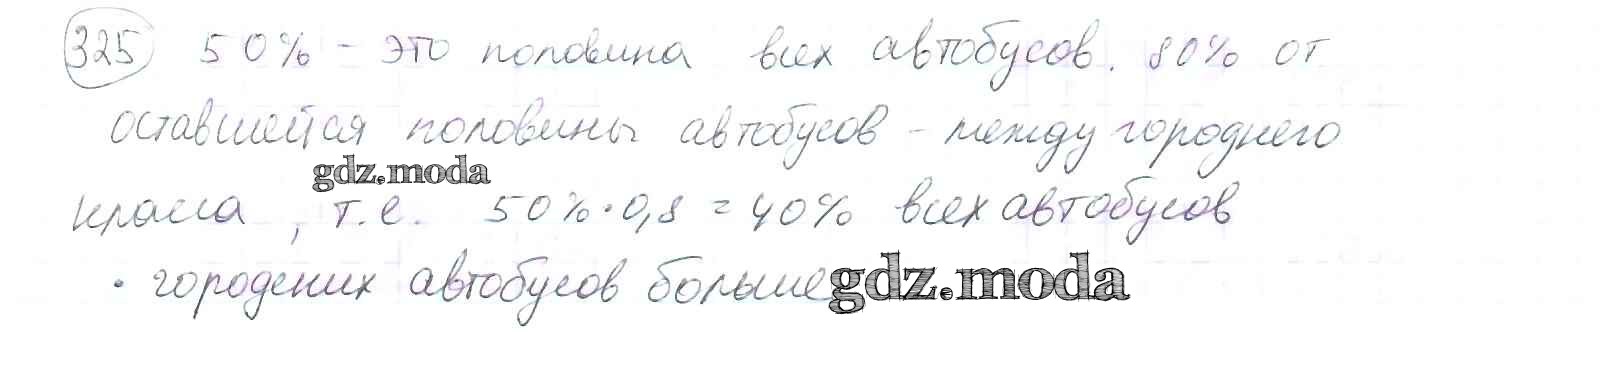 325 50% - это половина всех автобусов. 80% от
оставшейся половины автобусов - между городнего
gdz.moda
класса, т.е. 50%·0,8 = 40% всех автобусов
· городских автобусов больше gdz.moda